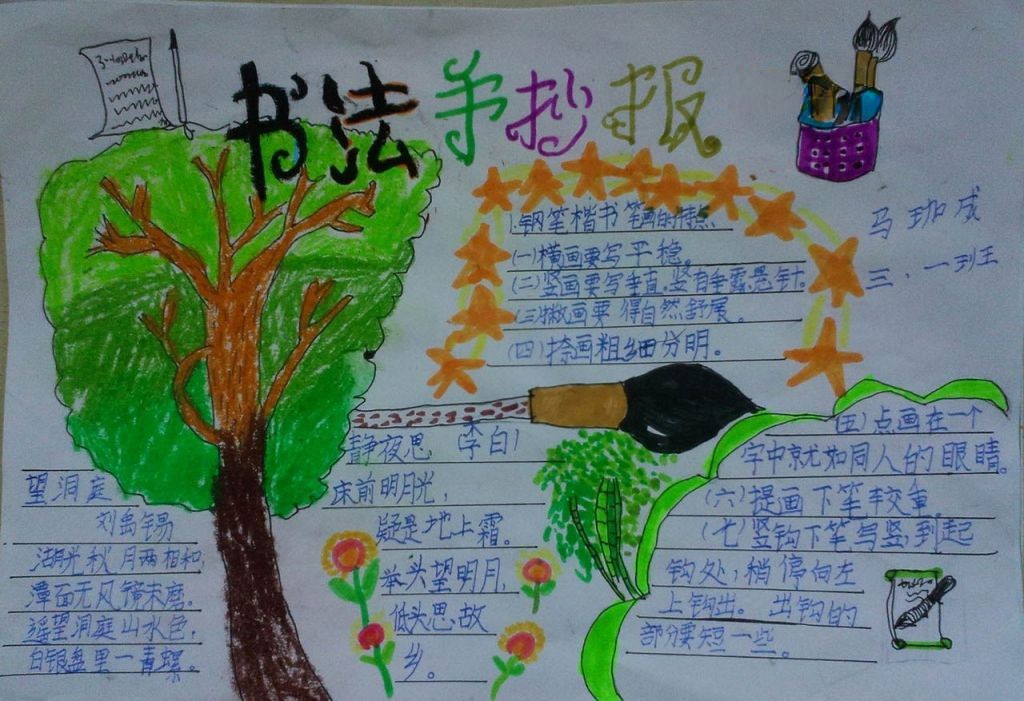 书法手抄报
马珈成
三.一班
1.钢笔楷书笔画的特点.
(一)横画要写平稳。
(二)竖画要写垂直.竖有垂露.悬针.
(三)撇画要 得自然舒展。
(四)捺画粗细分明。
(五)点画在一个
字中就如同人的眼睛。
(六)提画下笔较重
(七)竖钩下笔写竖,到起
钩处,稍停向左
上钩出。出钩的
部分要短一些。
静夜思 (李白)
床前明月光,
疑是地上霜。
举头望明月,
低头思故
乡。
望洞庭
刘禹锡
湖光秋月两相和,
潭面无风镜未磨.
遥望洞庭山水色,
白银盘里一青螺。